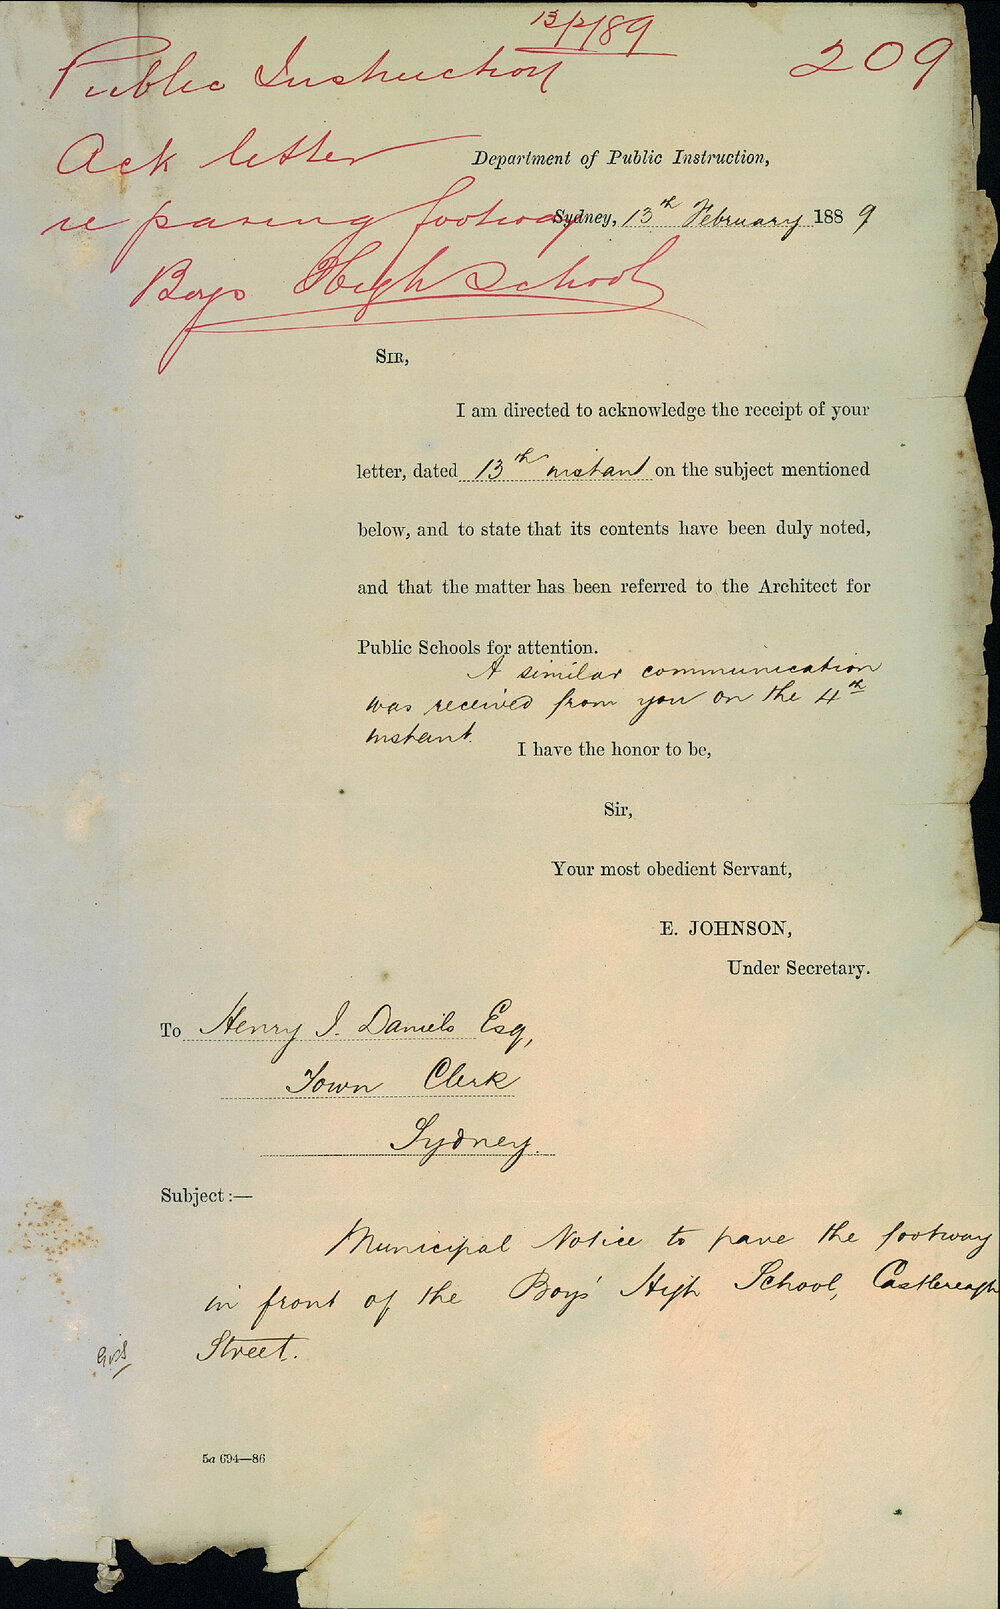 13/2/89
209
Public Instruction
Ack letter
re paving footway
Boys High School
Department of Public Instruction,
Sydney, 13th February 1889
SIR,
I am directed to acknowledge the receipt of your
letter, dated 13th instant on the subject mentioned
below, and to state that its contents have been duly noted,
and that the matter has been referred to the Architect for
Public Schools for attention.
A similar communication
was received from you on the 4th
instant.
I have the honor to be,
Sir,
Your most obedient Servant,
E. JOHNSON,
Under Secretary.
To Henry J. Daniels Esq,
Town Clerk
Sydney.
Subject:—
Municipal Notice to pave the footway
in front of the Boys' High School, Castlereagh
Street.
5a 694—86